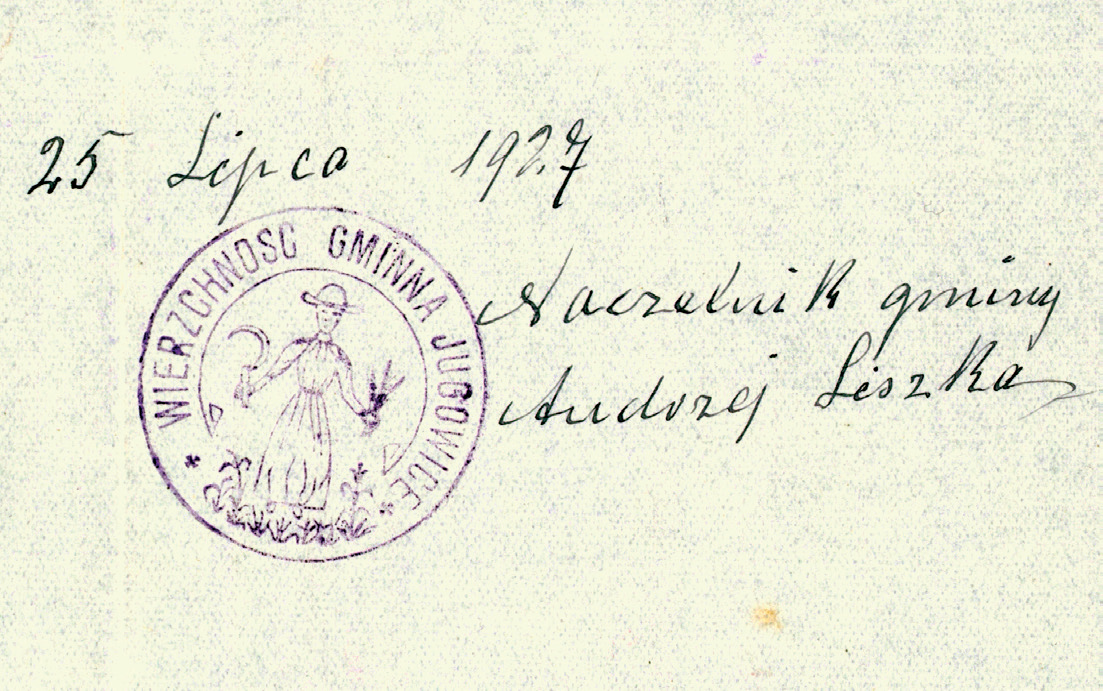 25 Lipca 1927
WIERZCHNOSC GMINNA JUGOWICE
Naczelnik gminy
Andrzej Liszka